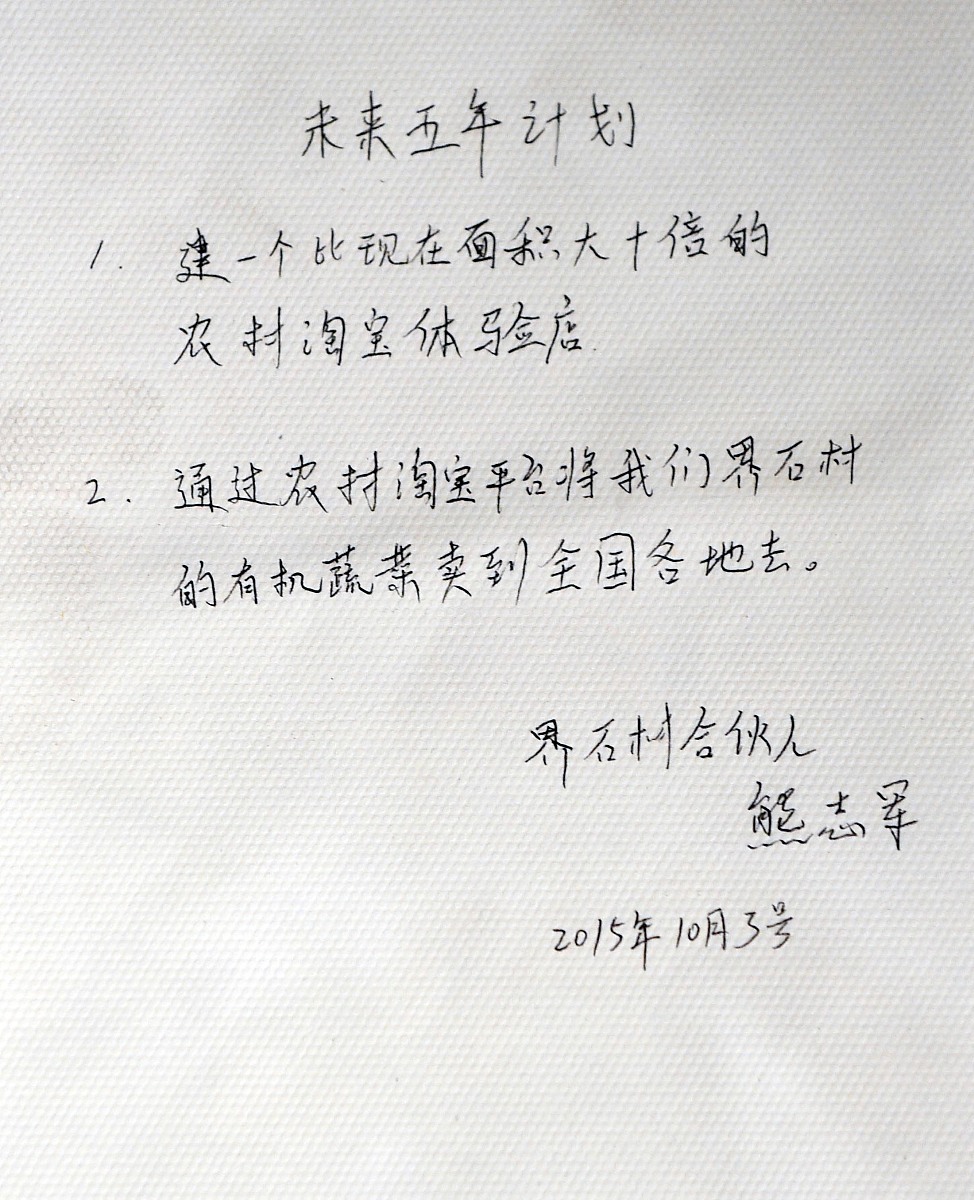 未来五年计划
1. 建一个比现在面积大十倍的
农村淘宝体验店.
2. 通过农村淘宝平台将我们界石村
的有机蔬菜卖到全国各地去。
界石村合伙人
熊志军
2015年10月3号